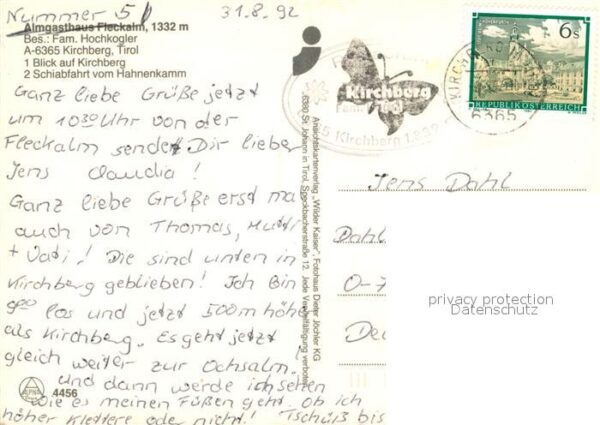 Nummer 5
31.8.92
Almgasthaus Fleckalm, 1332 m
Bes.: Fam. Hochkogler
A-6365 Kirchberg, Tirol
1 Blick auf Kirchberg
2 Schiabfahrt vom Hahnenkamm
Ganz liebe Grüße jetzt
um 10 30 Uhr von der
Fleckalm sendet Dir lieber
Jens Claudia!
Ganz liebe Grüße erst ma
auch von Thomas, Mutti
+ Vati! Die sind unten in
Kirchberg geblieben! Ich bin
9 00 los und jetzt 500 m höher
als Kirchberg. Es geht jetzt
gleich weiter zur Ochsalm.
und dann werde ich sehen
wie es meinen Füßen geht. ob ich
höher klettere oder nicht! Tschüß bis
4456
Ansichtskartenverlag „Wilder Kaiser", Fotohaus Dieter Jöchler KG
6380 St. Johann in Tirol, Speckbacherstraße 12. Jede Vervielfältigung verboten
Kirchberg
Tirol
Kirchberg
6365
6 S
REPUBLIK ÖSTERREICH
Jens Dahl
Dahl
O-7
De
privacy protection
Datenschutz